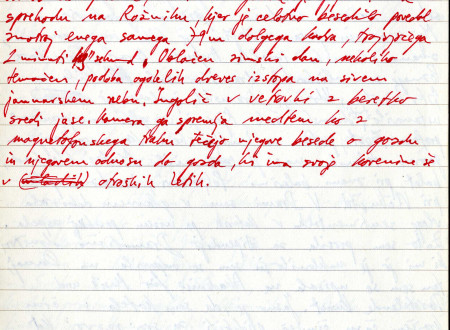 sprehodu na Rožniku, kjer je celotno besedilo
znotraj enega samega 79m dolgega kadra, trajajočega
2 minuti sekund. Oblačen zimski dan, nekoliko
temačen, podoba ogolelih dreves izstopa na sivem
januarskem nebu. Ingolič v vetrovki z baretko
sredi jase. Kamera ga spremlja medtem ko z
magnetofonskega traku tečejo njegove besede o gozdu
in njegovem odnosu do gozda, ki ima svoje korenine še
v otroških letih.